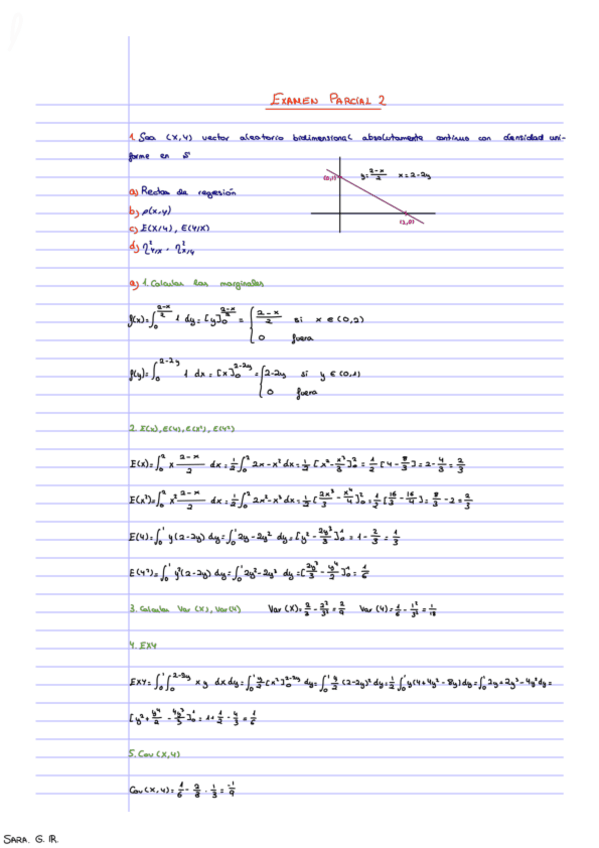 EXAMEN PARCIAL 2
1. Sea (X,Y) vector aleatorio bidimensional absolutamente continuo con densidad uni-
forme en S
(0,1) y=\frac{2-x}{2} x=2-2y
(2,0)
a) Rectas de regresión
b) ρ(x,y)
c) E(X/Y), E(Y/X)
d) η²_{Y/X}, η²_{X/Y}
a) 1. Calcular las marginales
f(x)=∫_0^{\frac{2-x}{2}} 1 dy=[y]_0^{\frac{2-x}{2}}={\frac{2-x}{2} si x∈(0,2)
0 fuera
f(y)=∫_0^{2-2y} 1 dx=[x]_0^{2-2y}={2-2y si y∈(0,1)
0 fuera
2. E(X), E(Y), E(X²), E(Y²)
E(X)=∫_0^2 x \frac{2-x}{2} dx=\frac{1}{2}∫_0^2 2x-x² dx=\frac{1}{2}[x²-\frac{x³}{3}]_0^2=\frac{1}{2}[4-\frac{8}{3}]=2-\frac{4}{3}=\frac{2}{3}
E(X²)=∫_0^2 x² \frac{2-x}{2} dx=\frac{1}{2}∫_0^2 2x²-x³ dx=\frac{1}{2}[\frac{2x³}{3}-\frac{x⁴}{4}]_0^2=\frac{1}{2}[\frac{16}{3}-\frac{16}{4}]=\frac{8}{3}-2=\frac{2}{3}
E(Y)=∫_0^1 y(2-2y) dy=∫_0^1 2y-2y² dy=[y²-\frac{2y³}{3}]_0^1=1-\frac{2}{3}=\frac{1}{3}
E(Y²)=∫_0^1 y²(2-2y) dy=∫_0^1 2y²-2y³ dy=[\frac{2y³}{3}-\frac{y⁴}{2}]_0^1=\frac{1}{6}
3. Calcular Var (X), Var(Y) Var (X)=\frac{2}{3}-\frac{2²}{3²}=\frac{2}{9} Var (Y)=\frac{1}{6}-\frac{1²}{3²}=\frac{1}{18}
4. EXY
EXY=∫_0^1∫_0^{2-2y} xy dxdy=∫_0^1 \frac{y}{2}[x²]_0^{2-2y} dy=∫_0^1 \frac{y}{2}(2-2y)² dy=\frac{1}{2}∫_0^1 y(4+4y²-8y)dy=∫_0^1 2y+2y³-4y²dy=
[y²+\frac{y⁴}{2}-\frac{4y³}{3}]_0^1=1+\frac{1}{2}-\frac{4}{3}=\frac{1}{6}
5. Cov (X,Y)
Cov (X,Y)=\frac{1}{6}-\frac{2}{3}·\frac{1}{3}=\frac{-1}{9}
SARA. G. R.